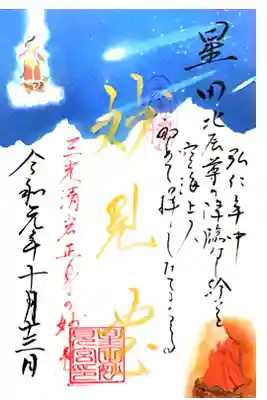 弘仁年中
星田北辰尊の降臨なし給ふを
空海上人
初めて拝したてまつる
妙見宮
三光清岩正身の妙見
令和元年十月十三日